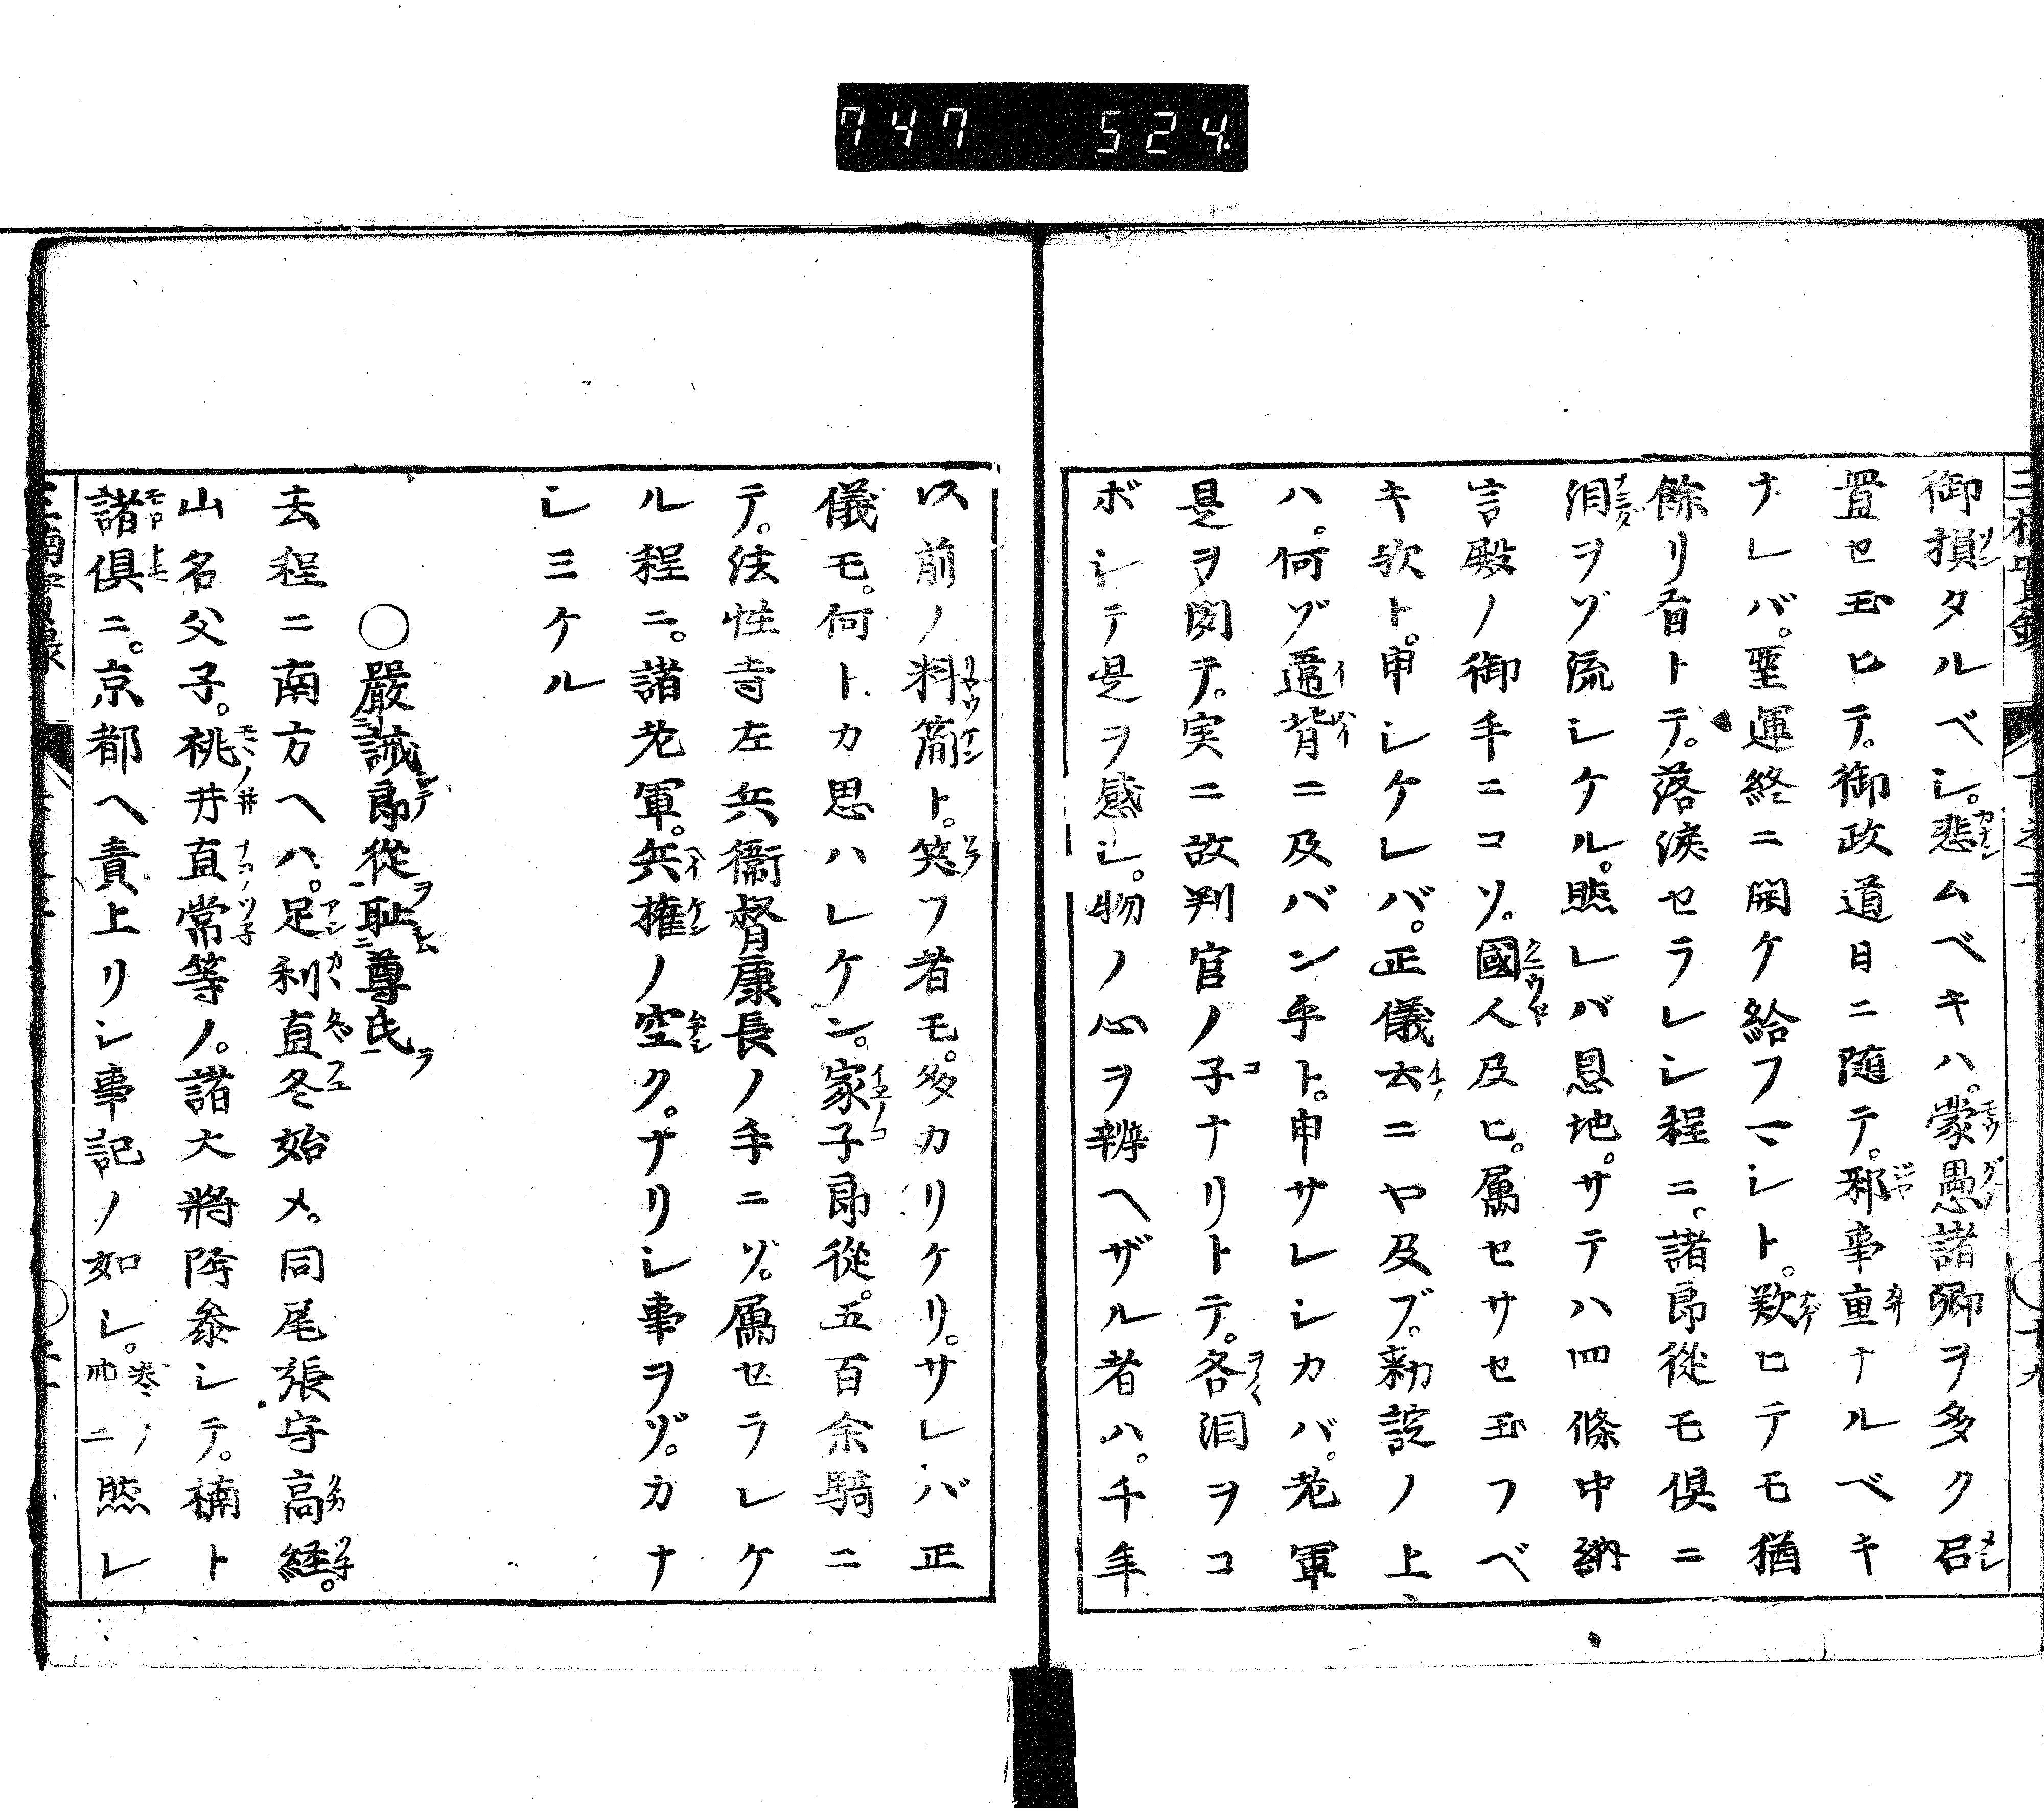 747 524
御損タルベシ。悲ムベキハ。蒙愚諸卿ヲ多ク召
置セ玉ヒテ。御政道日ニ随テ。邪事重ナルベキ
ナレバ。聖運終ニ開ケ給フマシト。歎ヒテモ猶
餘リ有トテ。落涙セラレシ程ニ。諸郎從モ倶ニ
泪ヲゾ流シケル。然レバ恩地。サテハ四條中納
言殿ノ御手ニコソ。國人及ヒ。属セサセ玉フベ
キ欤ト。申シケレバ。正儀云ニヤ及ブ。勅諚ノ上
ハ。何ゾ違背ニ及バン乎ト。申サレシカバ。老軍
是ヲ聞テ。実ニ故判官ノ子ナリトテ。各泪ヲコ
ボシテ是ヲ感シ。物ノ心ヲ辨ヘザル者ハ。千年
以前ノ料簡ト。笑フ者モ。多カリケリ。サレバ正
儀モ。何トカ思ハレケン。家子郎從。五百余騎ニ
テ。法性寺左兵衞督康長ノ手ニゾ。属セラレケ
ル程ニ。諸老軍。兵権ノ空ク。ナリシ事ヲゾ。カナ
シミケル
〇嚴誡郎從耻尊氏
去程ニ南方ヘハ。足利直冬始メ。同尾張守高経。
山名父子。桃井直常等ノ。諸大將降參シテ。楠ト
諸倶ニ。京都ヘ責上リシ事記ノ如シ。卅二巻ノ然レ